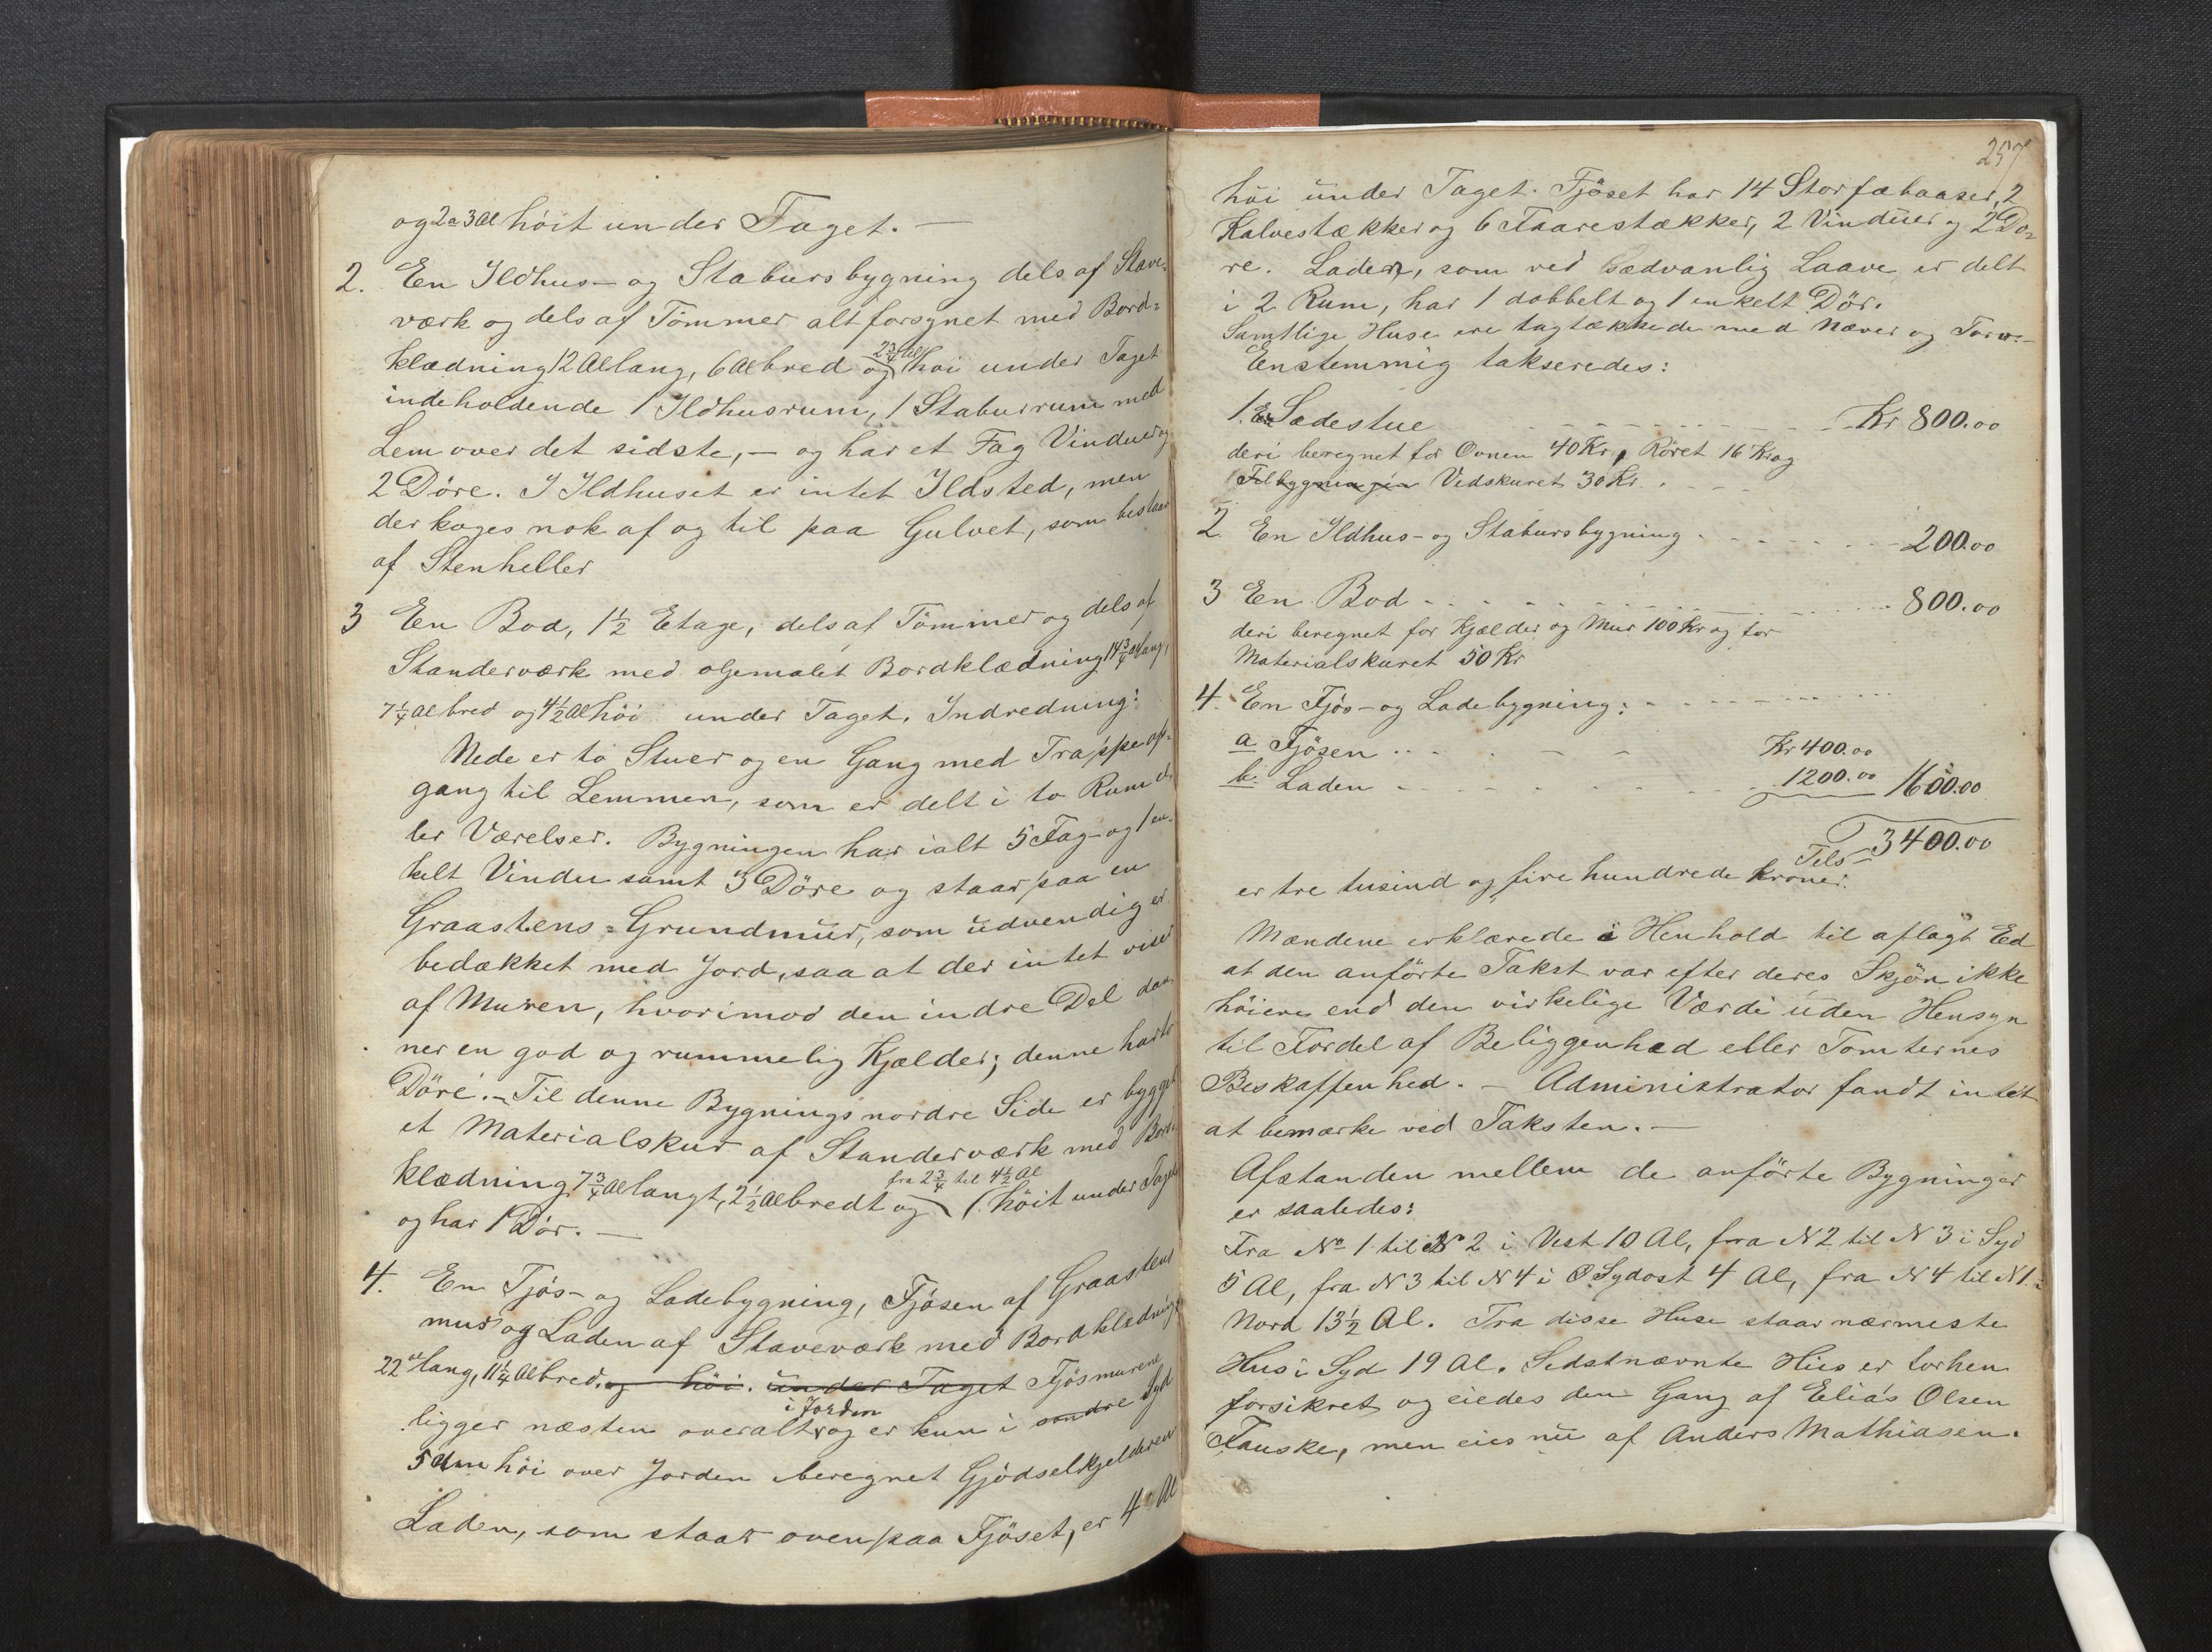 og 2 a 3 Al höit under Taget. —
2. En Ildhus- og Stabursbygning dels af Stave-
værk og dels af Tömmer alt forsynet med Bord=
klædning 12 Al lang, 6 Al bred og 2 3/4 Al höi under Taget
indeholdende 1 Ildhusrum, 1 Stabursrum med
Lem over det sidste, — og har et Fag Vinduer og
2 Döre. I Ildhuset er intet Ildsted, men
der koges nok af og til paa Gulvet, som bestaar
af Stenheller
3 En Bod, 1 1/2 Etage, dels af Tömmer og dels af
Standerværk med oljemalet Bordklædning 14 3/4 Al lang,
7 1/4 Al bred og 4 1/2 Al höi under Taget. Indredning:
Nede er to Stuer og en Gang med Trappeop-
gang til Lemmen, som er delt i to Rum el-
ler Værelser. Bygningen har ialt 5 Fag- og 1 en-
kelt Vindu samt 3 Döre og staar paa en
Graastens=Grundmur, som udvendig er
bedækket med Jord, saa at der intet viser
af Muren, hvorimod den indre Del dan-
ner en god og rummelig Kjælder; denne har to
Döre. — Til denne Bygnings nordre Side er bygget
et Materialskur af Standerværk med Bord-
klædning 7 3/4 Al langt, 2 1/2 Al bredt og fra 2 3/4 til 4 1/2 Al höit under Taget
og har 1 Dör. —
4. En Fjös- og Ladebygning, Fjösen af Graastens
mur og Laden af Staveværk med Bordklædning
22 Al lang, 11 1/4 Al bred. og höi. under Taget Fjösmurene
ligger næsten overalt i Jorden og er kun i söndre Syd
5 Alen höi over Jorden beregnet Gjödselkjelderen
Laden, som staar ovenpaa Fjöset, er 4 Al
257
höi under Taget. Fjöset har 14 Storfæbaaser, 2
Kalvestækker og 6 Faarestækker, 2 Vinduer og 2 Dö=
re. Laden, som ved sædvanlig Laave er delt
i 2 Rum, har 1 dobbelt og 1 enkelt Dör.
Samtlige Huse ere tagtækkede med Næver og Torv. —
Enstemmig takseredes:
1. En Sædestue Kr 800.00
deri beregnet for Ovnen 40 Kr, Röret 16 Kr og
Vedskuret 30 Kr.
2 En Ildhus- og Stabursbygning 200.00
3 En Bod 800.00
deri beregnet for Kjælder og Mur 100 Kr og for
Materialskuret 50 Kr
4. En Fjös- og Ladebygning:
a Fjösen Kr 400.00
b. Laden 1200.00 1600.00
Tils 3400.00
er tre tusind og fire hundrede Kroner.
Mændene erklærede i Henhold til aflagt Ed
at den anförte Takst var efter deres Skjön ikke
höiere end den virkelige Værdi uden Hensyn
til Fordel af Beliggenhed eller Tomternes
Beskaffenhed. — Administrator fandt intet
at bemærke ved Taksten. —
Afstanden mellem de anförte Bygninger
er saaledes:
Fra No 1 til No 2 i Vest 10 Al, fra N 2 til N 3 i Syd
5 Al, fra N 3 til N 4 i Sydost 4 Al, fra N 4 til N 1 i
Nord 13 1/2 Al. Fra disse Huse staar nærmeste
Hus i Syd 19 Al. Sidstnævnte Hus er forhen
forsikret og eiedes den Gang af Elias Olsen
Fauske, men eies nu af Anders Mathiasen.